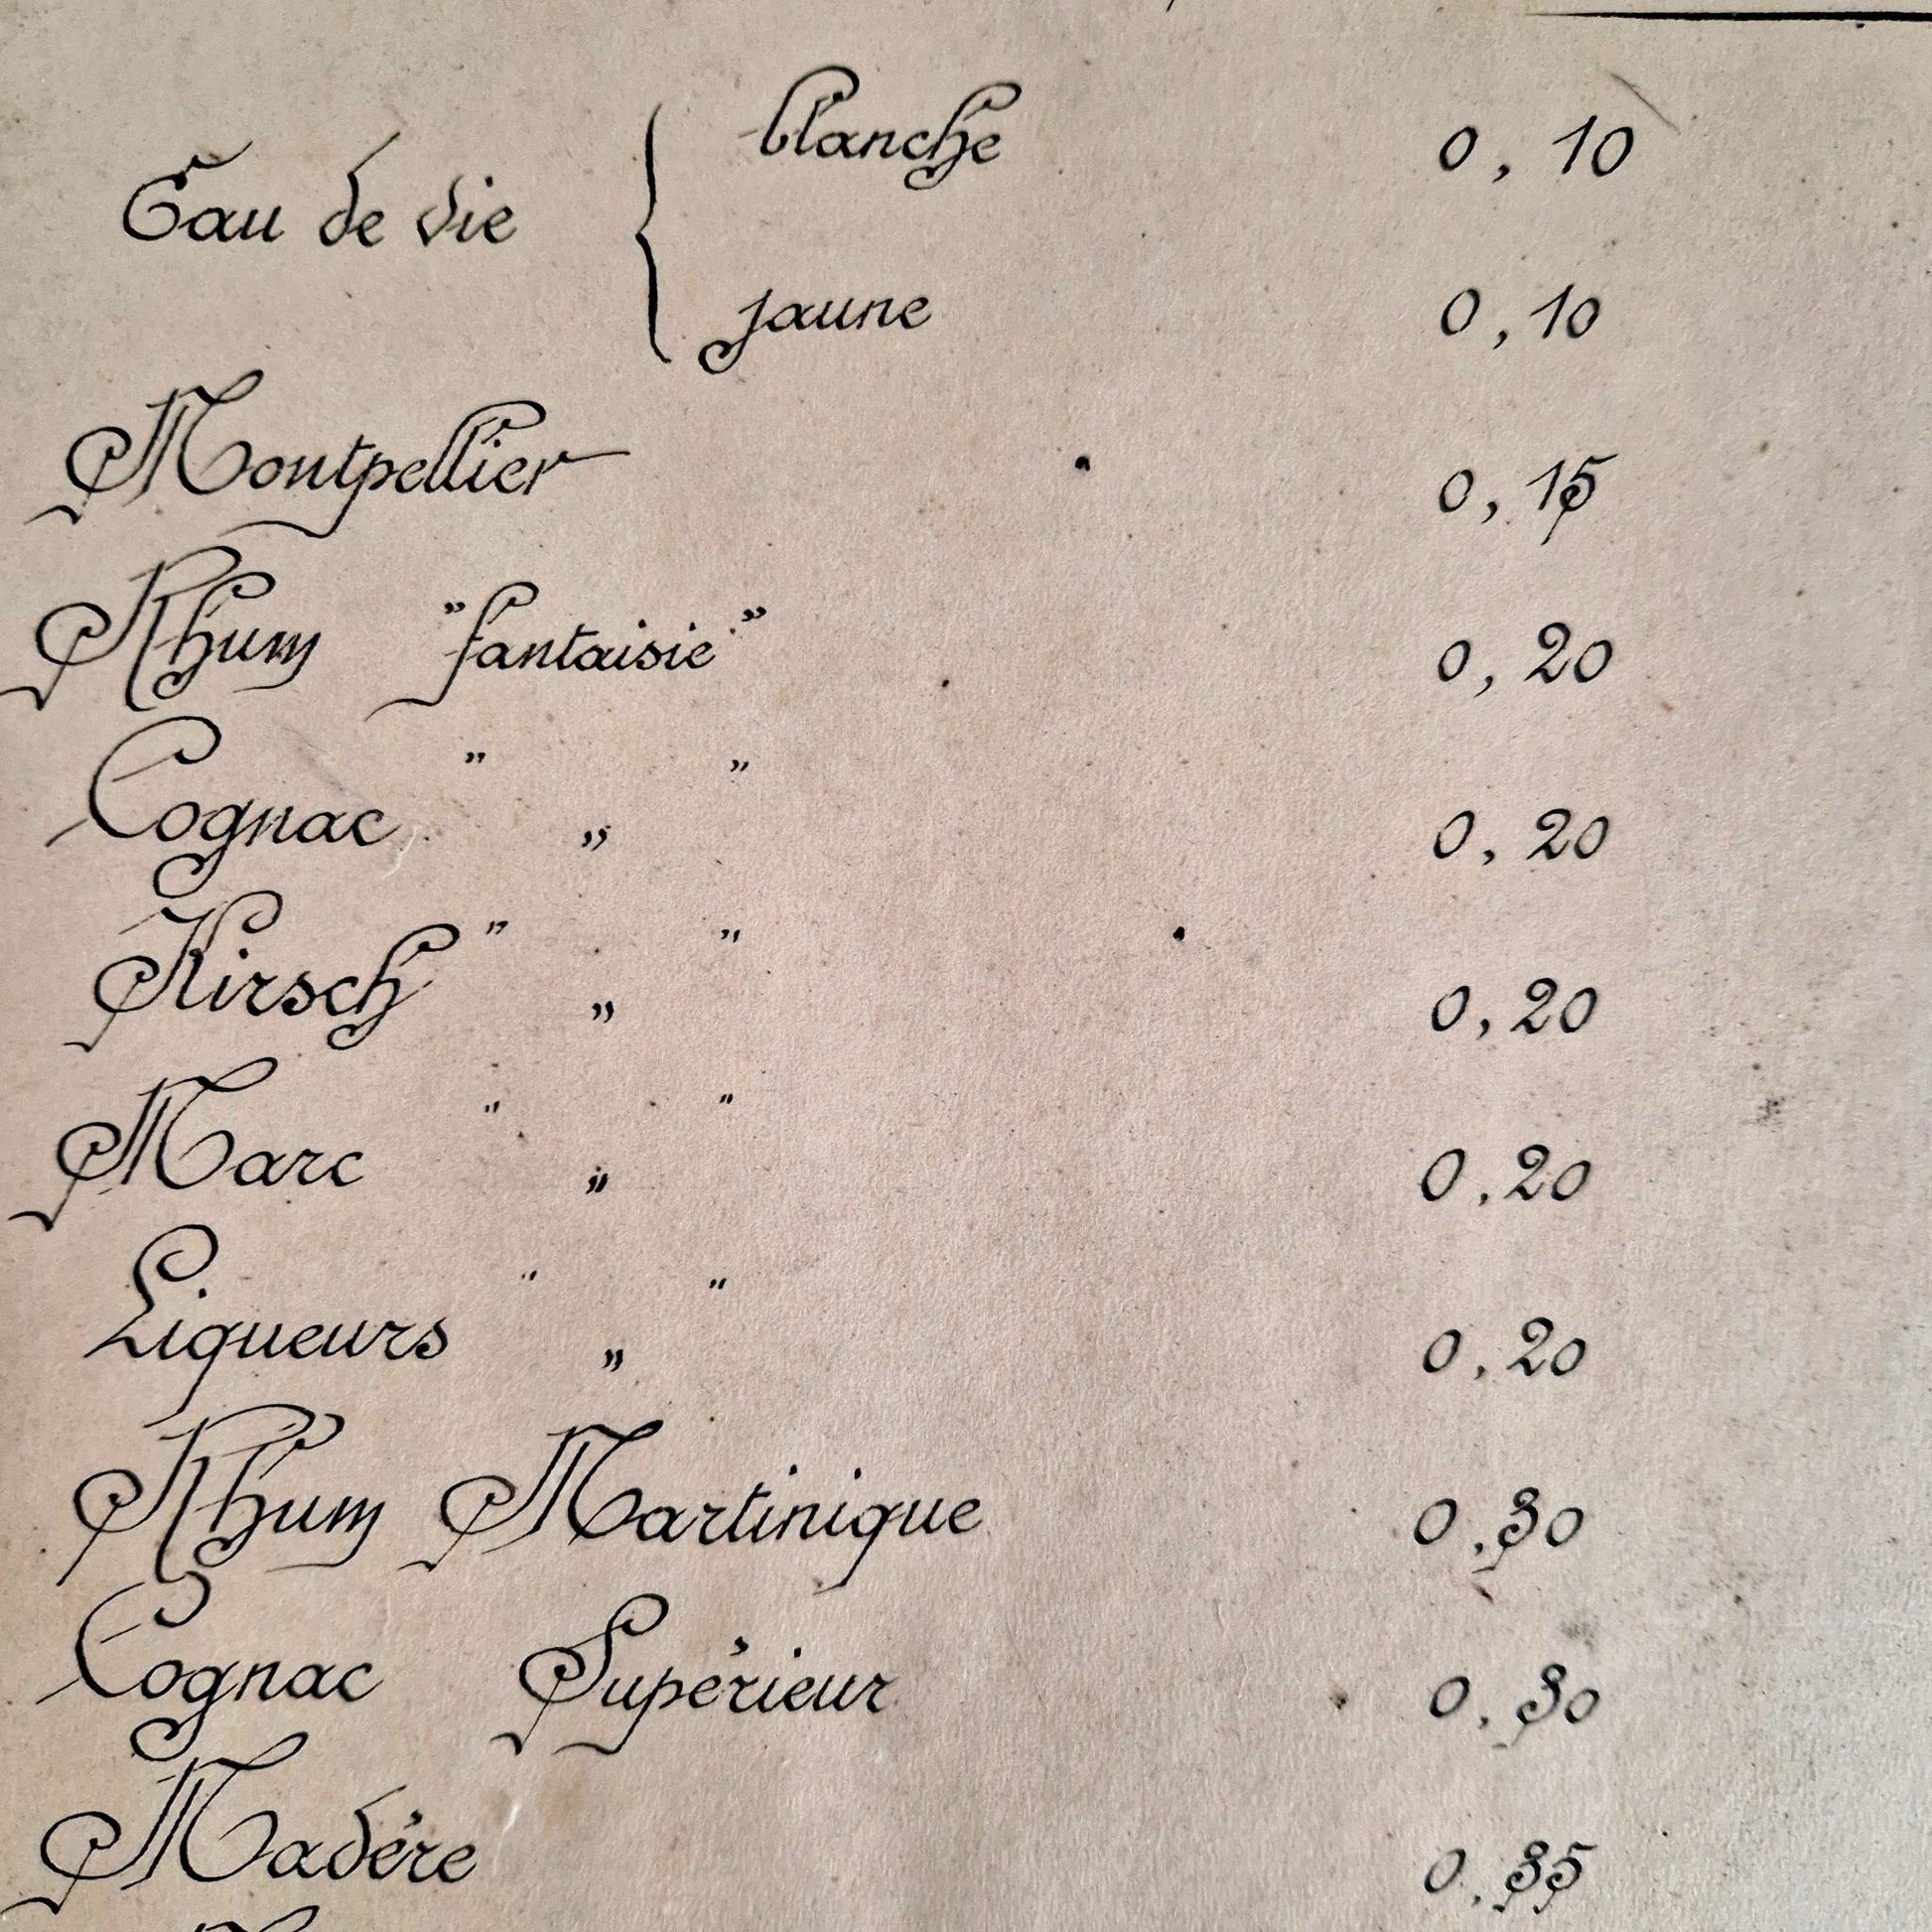 Eau de vie { blanche 0,10
jaune 0,10
Montpellier 0,15
Rhum "fantaisie" 0,20
Cognac " „ " 0,20
Kirsch " „ " 0,20
Marc " „ " 0,20
Liqueurs " „ " 0,20
Rhum Martinique 0,30
Cognac Supérieur 0,30
Madère 0,35